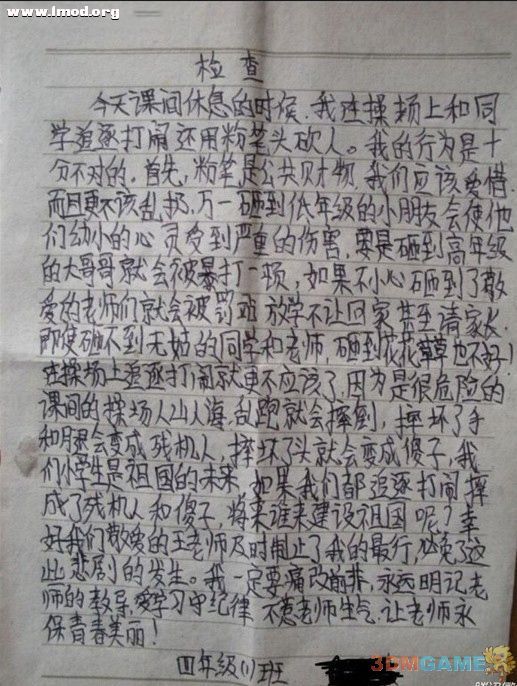 www.lmod.org
检查
今天课间休息的时候，我在操场上和同
学追逐打闹还用粉笔头砍人。我的行为是十
分不对的。首先，粉笔是公共财物，我们应该爱惜，
而且更不该乱扔，万一砸到低年级的小朋友会使他
们幼小的心灵受到严重的伤害，要是砸到高年级
的大哥哥就会被暴打一顿，如果不小心砸到了敬
爱的老师们就会被罚站 放学不让回家 甚至请家长。
即使砸不到无姑的同学和老师，砸到花花草草也不好！
在操场上追逐打闹就更不应该了，因为是很危险的
课间的操场人山人海，乱跑就会摔倒，摔坏了手
和腿会变成残机人，摔坏了头就会变成傻子，我
们小学生是祖国的未来，如果我们都追逐打闹摔
成了残机人和傻子，将来谁来建设祖国呢？幸
好我们敬爱的王老师及时制止了我的最行，必免了这
些悲剧的发生。我一定要痛改前非，永远明记老
师的教导，爱学习守纪律 不惹老师生气，让老师永
保青春美丽！
四年级(1)班
3DMGAME